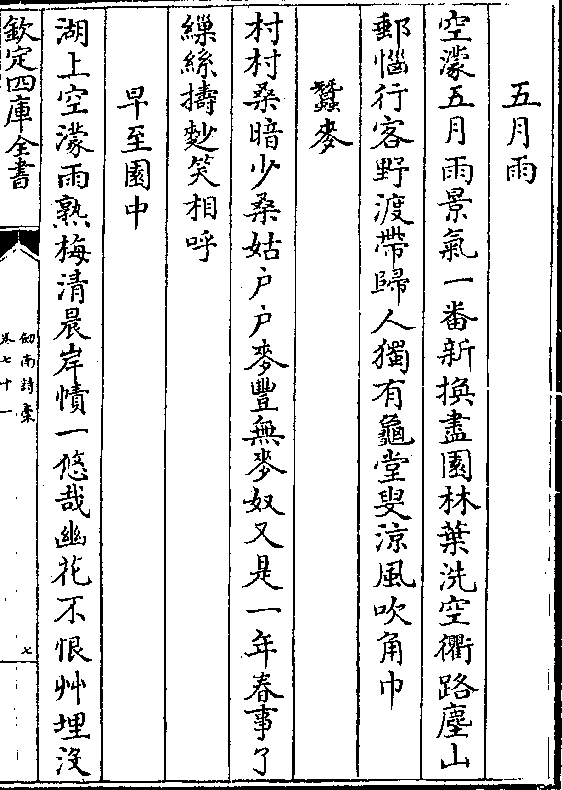 五月雨
空濛五月雨景氣一番新換盡園林葉洗空衢路塵山
郵惱行客野渡帶歸人獨有龜堂叟涼風吹角巾
蠶麥
村村桑暗少桑姑户户麥豐無麥奴又是一年春事了
繅絲擣麨笑相呼
早至園中
湖上空濛雨熟梅清晨岸幘一悠哉幽花不恨艸埋没
欽定四庫全書
劒南詩藁
卷七十一
七